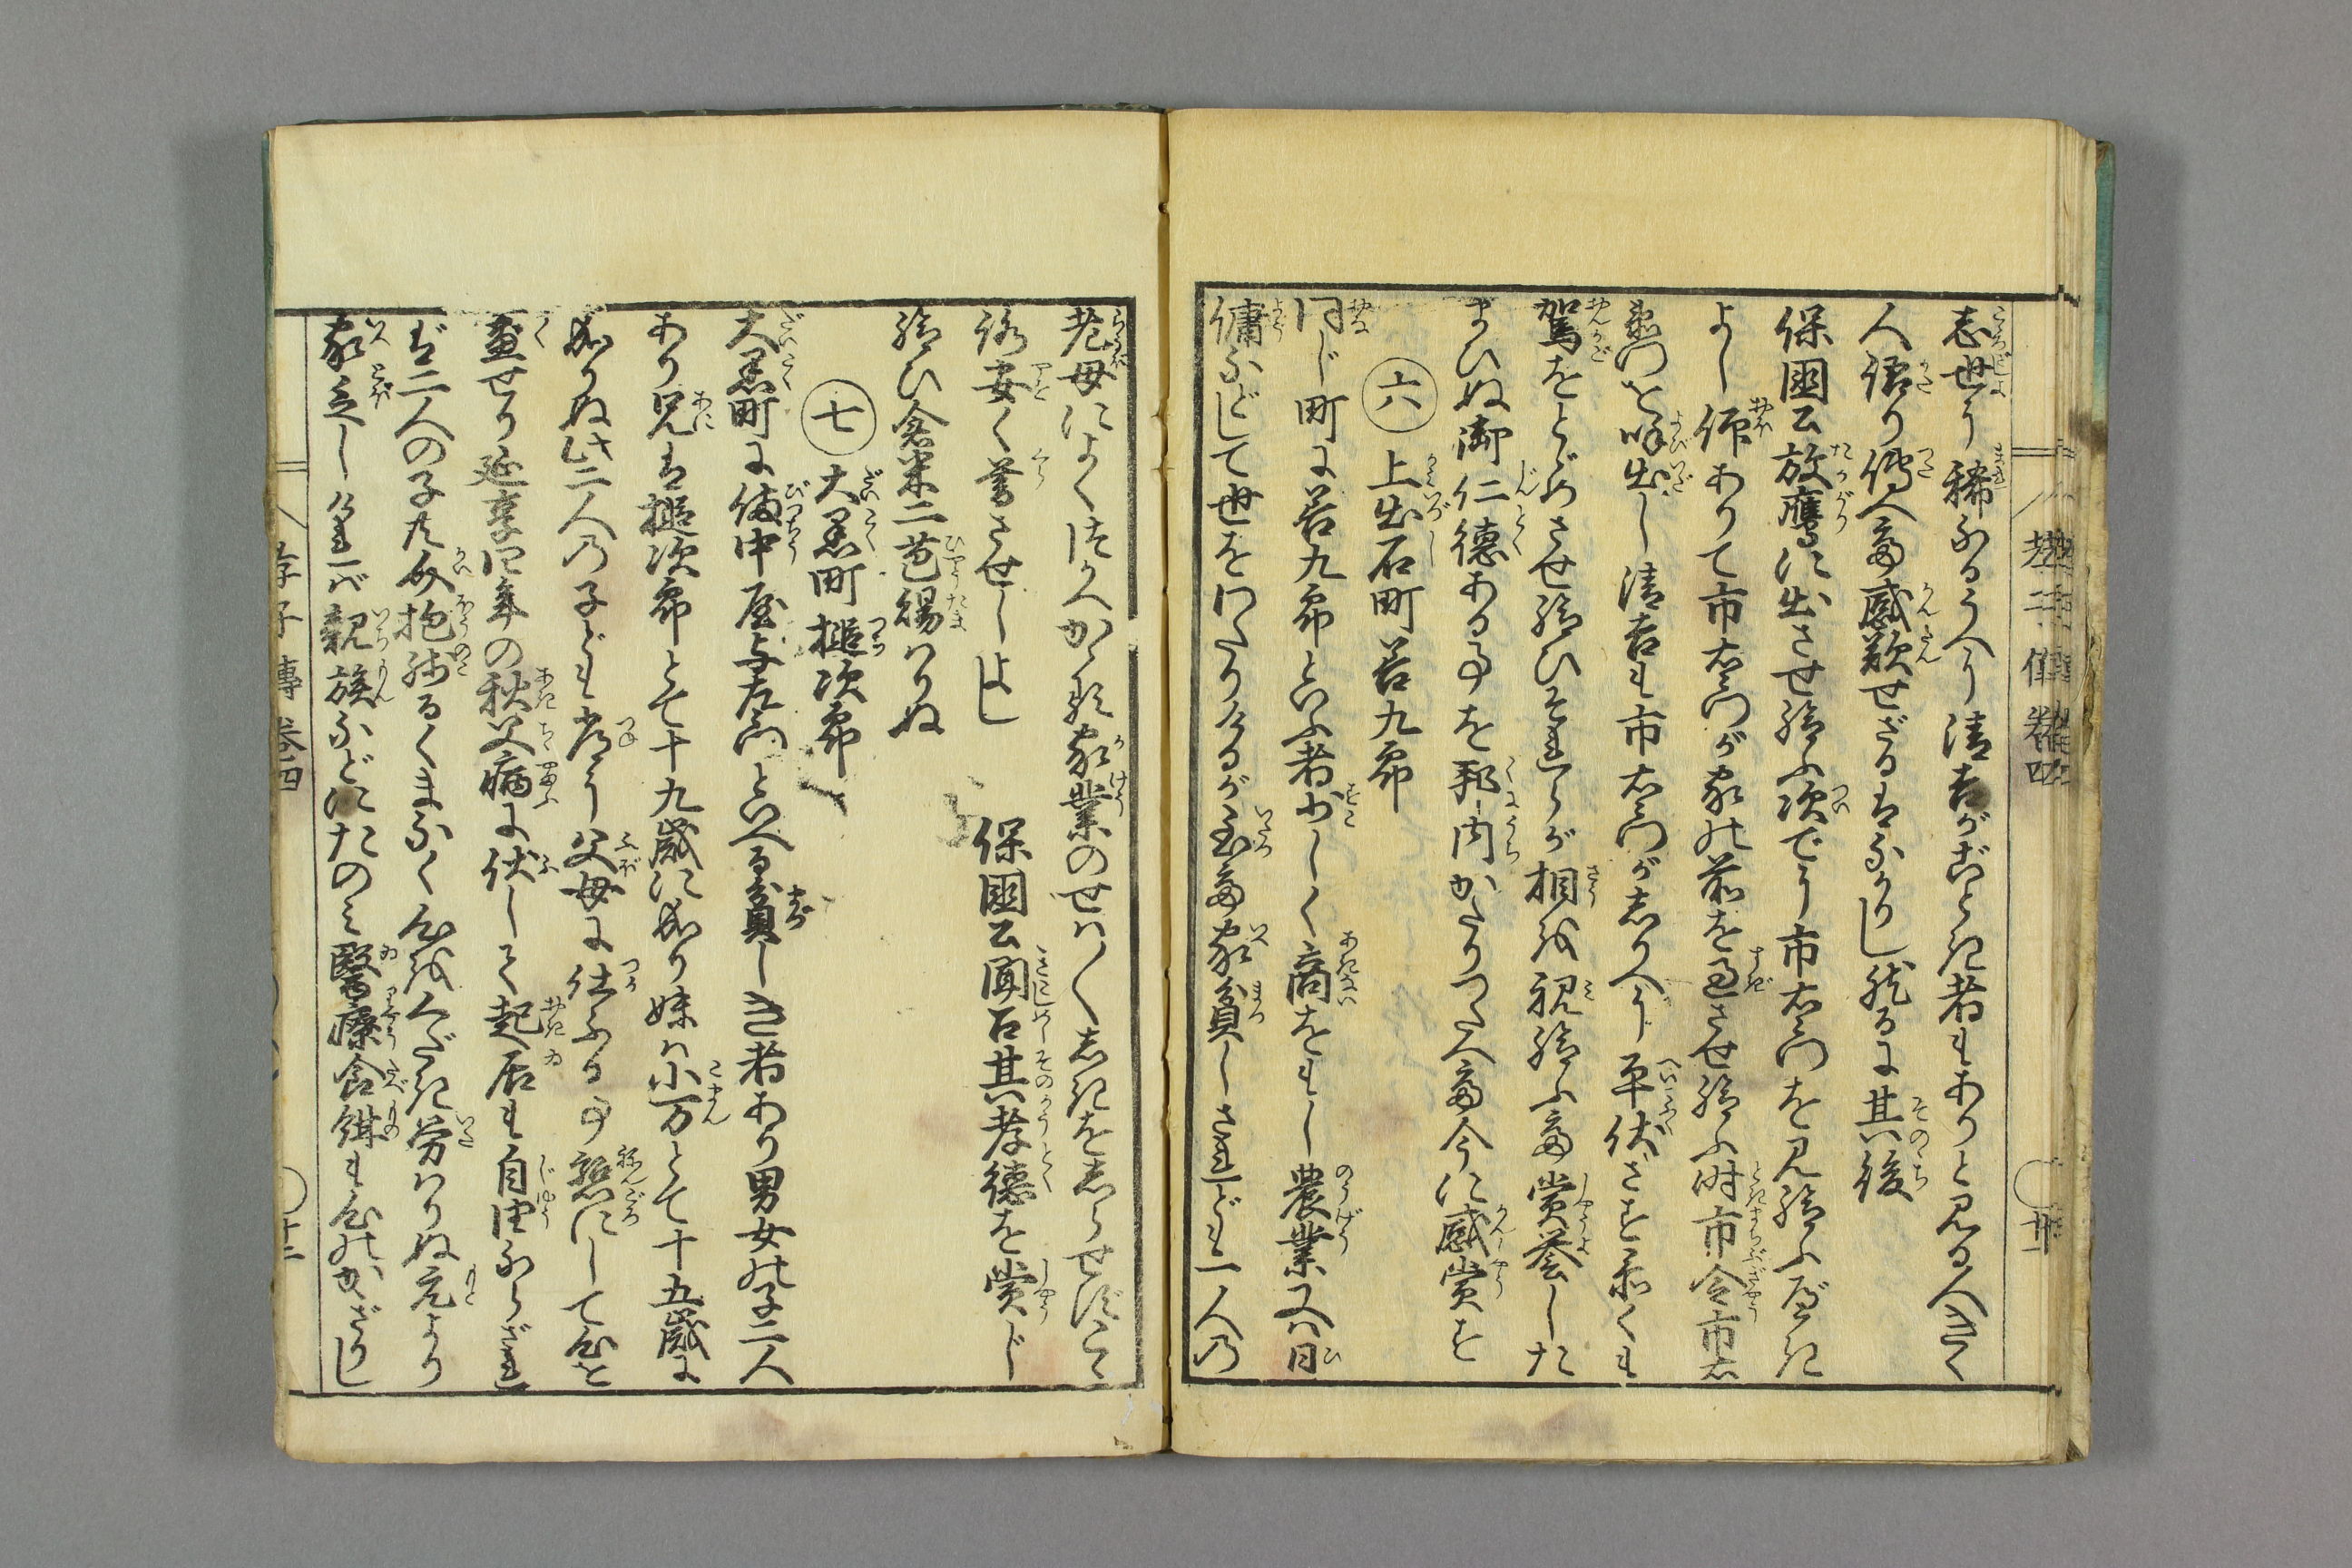 志世に稀なるうへに清吉がごとき者もありと見る人きく
人語り傳へ感歎せざるはなかりし然るに其後
保國公放鷹に出させ給ふ次でに市右衛門を見給ふべき
よし仰ありて市右衛門が家の前を過させ給ふ時市令市右
衛門を呼出し清吉も市右衛門がしりへに平伏させ忝くも
駕をとゞめさせ給ひそれらが相を視給ふ 賞誉した
まひぬ御仁徳ある事を邦内かたりつたへ 今に感賞を
六 上出石町若九郎
同じ町に若九郎といふ者少しく商をもし農業又ハ日
傭などして世をわたりけるが 家貧しされども一人の
孝子傳巻四
老母によくつかへかゝる家業のせハ〳〵しきをしらせずこゝ
ろ安く暮させしよし 保國公聞召其孝徳を賞じ
給ひ倉米二苞賜ハりぬ
七 大黒町槌次郎
大黒町に備中屋与左衛門といへる貧しき者あり男女の子二人
あり兄は槌次郎とて十九歳になり妹ハ小万とて十五歳に
なりぬ此二人の子ども常に父母に仕ふる事懇にして心を
盡せり延享四年の秋父病に伏して起居も自由ならざれ
ば二人の子共介抱残るくまなく心をくだき労ハりぬ元より
家乏しければ親族などにたのみ醫療食餌も心のかざりし
孝子傳巻四
十二